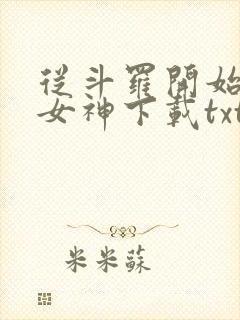 從斗羅開始
女神下載txt
米米蘇